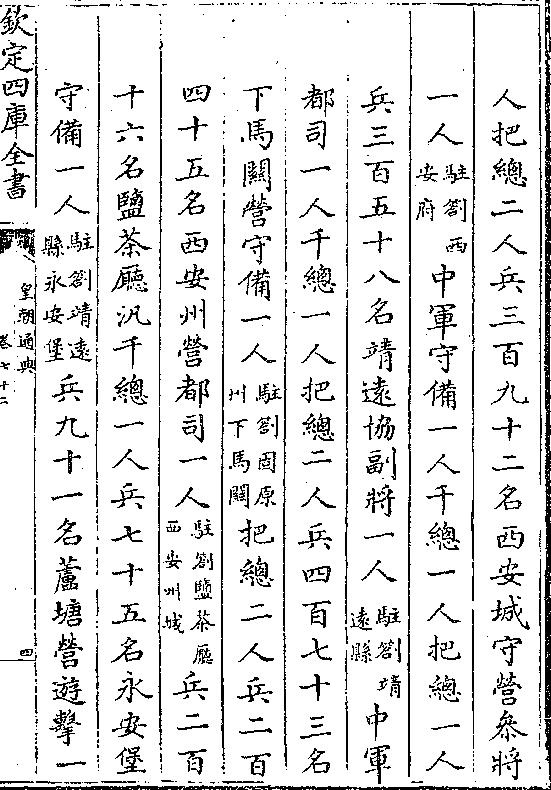 人把總二人兵三百九十二名西安城守營叅將
一人駐劄西安府中軍守備一人千總一人把總一人
兵三百五十八名靖遠協副將一人駐劄靖遠縣中軍
都司一人千總一人把總二人兵四百七十三名
下馬關營守備一人駐劄固原州下馬關把總二人兵二百
四十五名西安州營都司一人駐劄鹽茶廳西安州城兵二百
十六名鹽茶廳汛千總一人兵七十五名永安堡
守備一人駐劄靖遠縣永安堡兵九十一名蘆塘營遊擊一
欽定四庫全書
皇朝通典
卷七十二
四